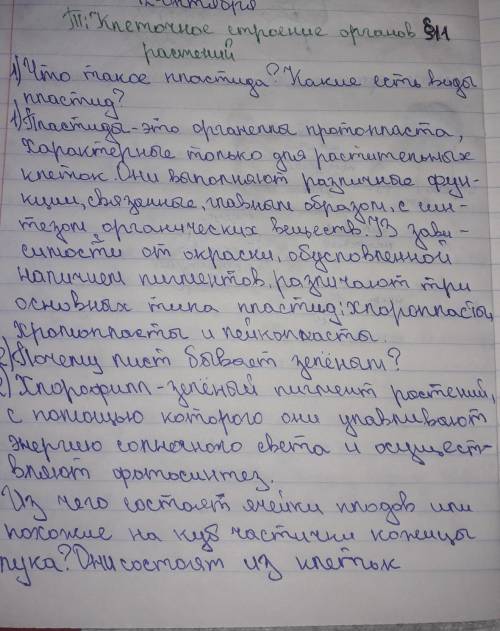 12-октября
Т: Клеточное строение органов §11
растений
1) Что такое пластида? Какие есть виды
пластид?
1) Пластиды-это органеллы протопласта,
характерные только для растительных
клеток. Они выполняют различные фун-
кции, связанные, главным образом, с син-
тезом органических веществ. В зави-
симости от окраски, обусловленной
наличием пигментов, различают три
основных типа пластид: хлоропласты,
хромопласты и лейкопласты.
2) Почему лист бывает зелёным?
2) Хлорофилл-зелёный пигмент растений,
с помощью которого они улавливают
энергию солнечного света и осущест-
вляют фотосинтез.
Из чего состоят ячейки плодов или
похожие на куб частички кожицы
лука? Они состоят из клеток